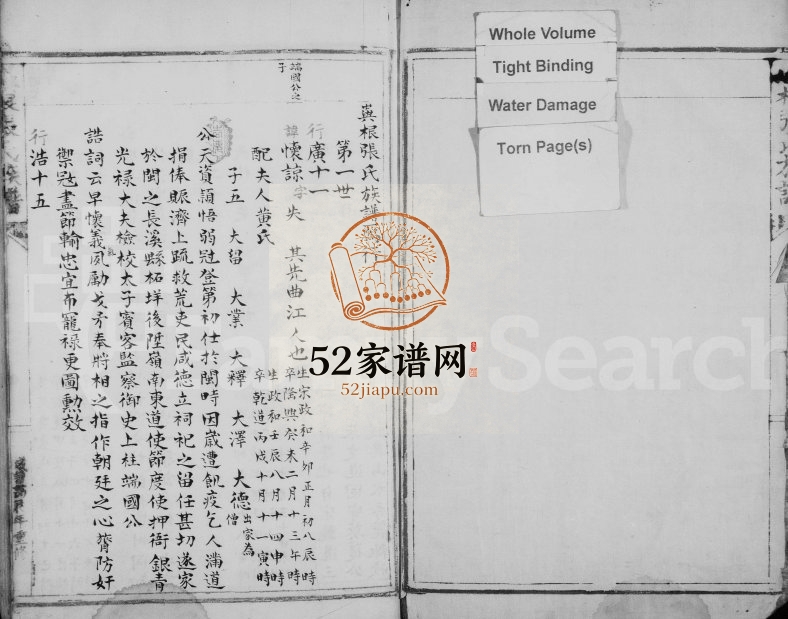 Whole Volume
Tight Binding
Water Damage
Torn Page(s)
英根張氏族譜
第一世
行廣十一
端國公之子
諱懷諒字失 其先曲江人也
生宋政和辛卯正月初八辰時
卒隆興癸未二月十三午時
配夫人黄氏
生政和壬辰八月十四申時
卒乾道丙戌十月十一寅時
子五 大留 大業 大釋 大澤 大德出家為僧
公天資頴悟弱冠登第初仕於閩時因歲遭飢疫乞人滿道
捐俸賑濟上疏救荒吏民咸德立祠祀之留任甚切遂家
於閩之長溪縣柘垟後陞嶺南東道使節度使押衙銀青
光禄大夫檢校太子賓客監察御史上柱端國公
誥詞云早懷義夙勵戈矛奉將相之指作朝廷之心膂防奸
禦冦盡節輸忠宜布寵禄更圖勲效
行浩十五
52家谱网
52jiapu.com
Search